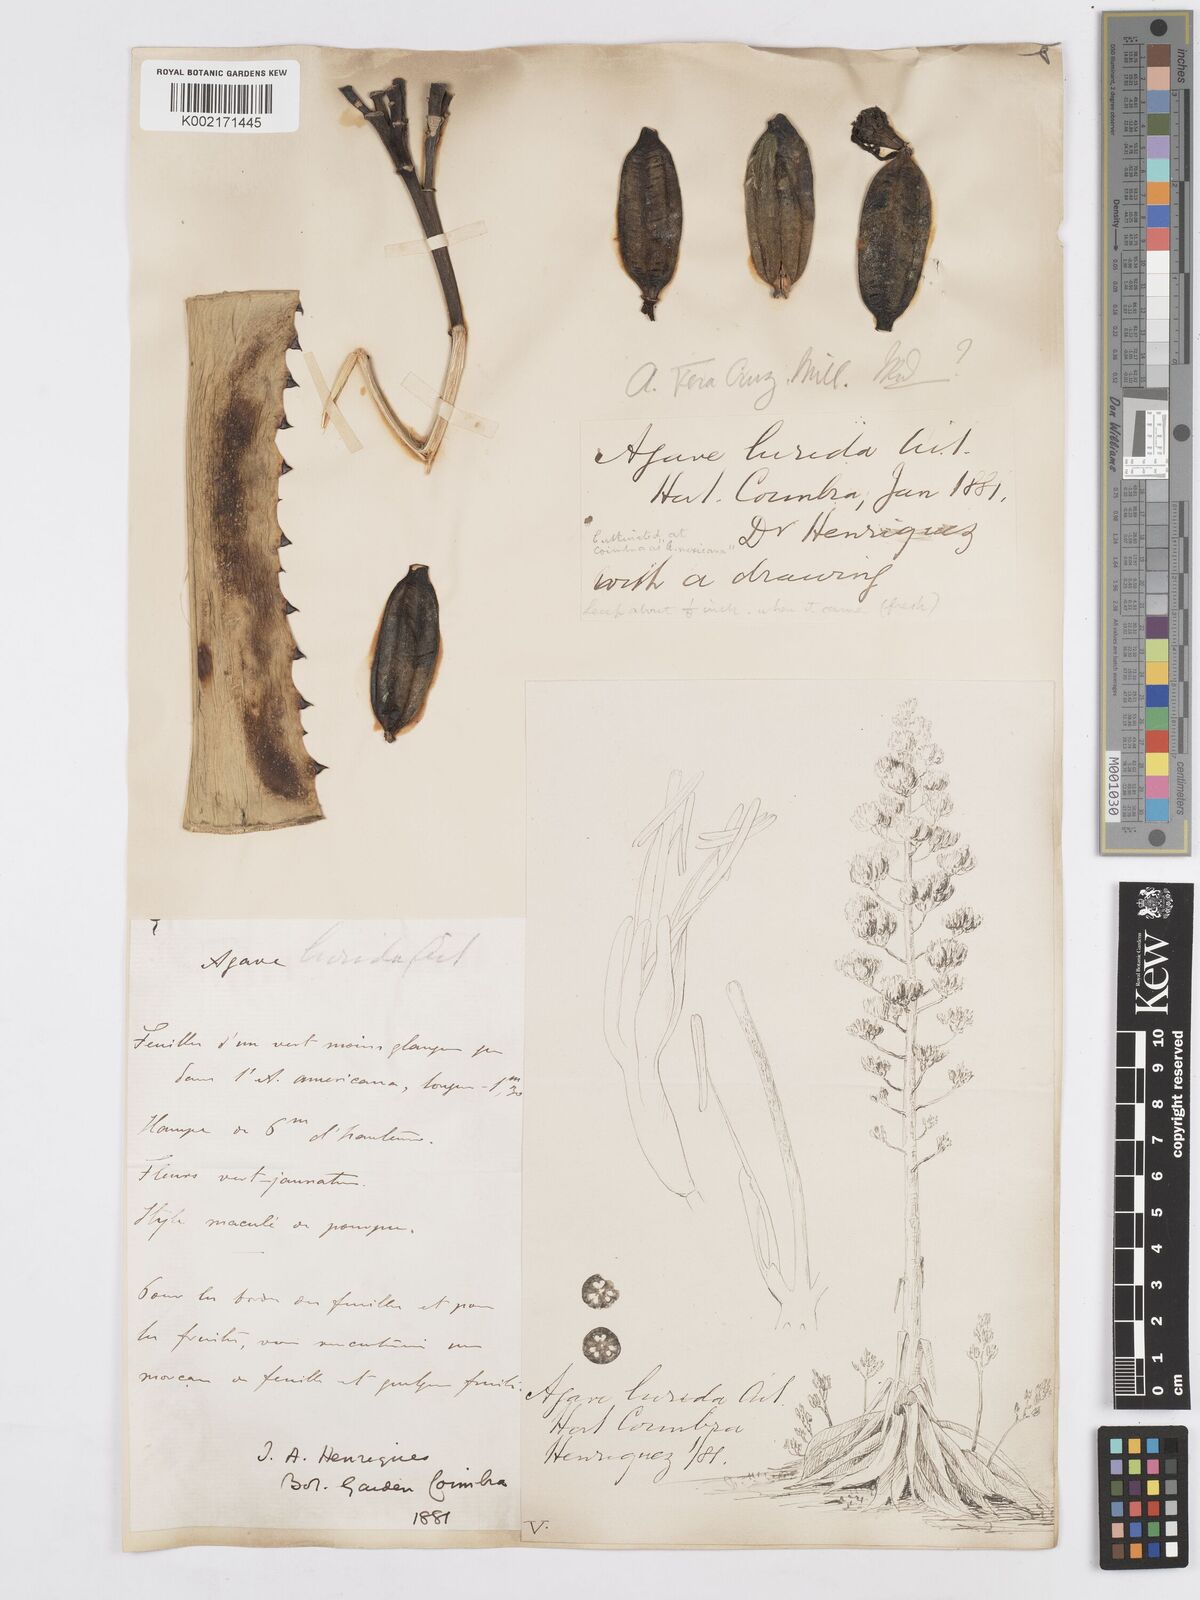 ROYAL BOTANIC GARDENS KEW
K002171445
A. Vera Cruz. Mill. ?
Agave lurida Ait.
Hort. Coimbra, Jan 1881.
Dr Henriquez
Cultivated at
Coimbra as "A. mexicana"
with a drawing
Leaf about ½ inch. when it came (fresh)
Agave lurida Ait
Feuilles d'un vert moins glauque que
dans l'A. americana, longues - 1,m30
Hampe de 6m d'hauteur.
Fleurs vert-jaunatre.
Style maculé de pourpre.
Pour les bords des feuilles et pour
les fruits, un
morceau de feuille et quelques fruits.
J. A. Henriques
Bot. Garden Coimbra
1881
Agave lurida Ait.
Hort Coimbra
Henriquez 1/81.
V.
inches
centimeters
Density
Don Williams
M001030
Kew
Royal Botanic Gardens
0 1 2 3 4 5 6 7 8 9 10
cm
copyright reserved